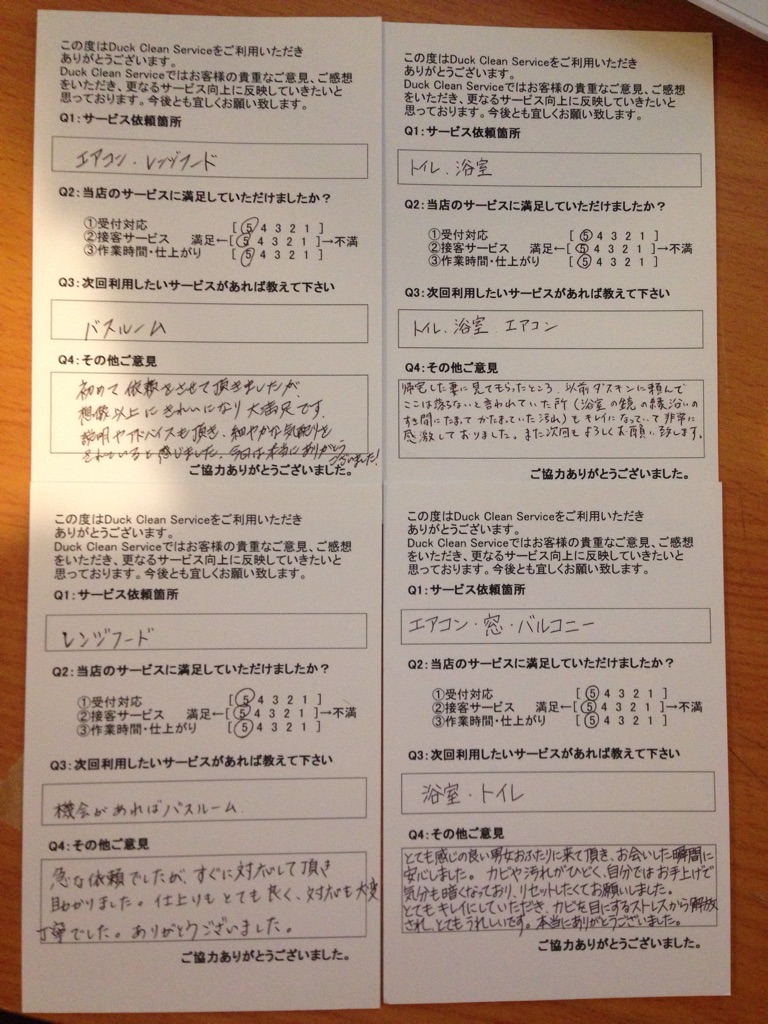 この度はDuck Clean Serviceをご利用いただき
ありがとうございます。
Duck Clean Serviceではお客様の貴重なご意見、ご感想
をいただき、更なるサービス向上に反映していきたいと
思っております。今後とも宜しくお願い致します。
Q1:サービス依頼箇所
エアコン・レンジフード
Q2:当店のサービスに満足していただけましたか?
①受付対応 [ 5 4 3 2 1 ]
②接客サービス 満足←[ 5 4 3 2 1 ]→不満
③作業時間・仕上がり [ 5 4 3 2 1 ]
Q3:次回利用したいサービスがあれば教えて下さい
バスルーム
Q4:その他ご意見
初めて依頼をさせて頂きましたが
想像以上にきれいになり大満足です。
説明やアドバイスも頂き、細やかな気配りを
されていると感じました。今日は本当にありがとう
ございました!
ご協力ありがとうございました。
この度はDuck Clean Serviceをご利用いただき
ありがとうございます。
Duck Clean Serviceではお客様の貴重なご意見、ご感想
をいただき、更なるサービス向上に反映していきたいと
思っております。今後とも宜しくお願い致します。
Q1:サービス依頼箇所
トイレ.浴室
Q2:当店のサービスに満足していただけましたか?
①受付対応 [ 5 4 3 2 1 ]
②接客サービス 満足←[ 5 4 3 2 1 ]→不満
③作業時間・仕上がり [ 5 4 3 2 1 ]
Q3:次回利用したいサービスがあれば教えて下さい
トイレ.浴室.エアコン
Q4:その他ご意見
帰宅した妻に見てもらったところ、以前ダスキンに頼んで
ここは落ちないと言われていた所(浴室の鏡の縁沿いの
すき間にたまってかたまっていた汚れ)もキレイになっていて非常に
感激しておりました。また次回もよろしくお願い致します。
ご協力ありがとうございました。
この度はDuck Clean Serviceをご利用いただき
ありがとうございます。
Duck Clean Serviceではお客様の貴重なご意見、ご感想
をいただき、更なるサービス向上に反映していきたいと
思っております。今後とも宜しくお願い致します。
Q1:サービス依頼箇所
レンジフード
Q2:当店のサービスに満足していただけましたか?
①受付対応 [ 5 4 3 2 1 ]
②接客サービス 満足←[ 5 4 3 2 1 ]→不満
③作業時間・仕上がり [ 5 4 3 2 1 ]
Q3:次回利用したいサービスがあれば教えて下さい
機会があればバスルーム.
Q4:その他ご意見
急な依頼でしたが、すぐに対応して頂き
助かりました。仕上りもとても良く、対応も大変
丁寧でした。ありがとうございました。
ご協力ありがとうございました。
この度はDuck Clean Serviceをご利用いただき
ありがとうございます。
Duck Clean Serviceではお客様の貴重なご意見、ご感想
をいただき、更なるサービス向上に反映していきたいと
思っております。今後とも宜しくお願い致します。
Q1:サービス依頼箇所
エアコン・窓・バルコニー
Q2:当店のサービスに満足していただけましたか?
①受付対応 [ 5 4 3 2 1 ]
②接客サービス 満足←[ 5 4 3 2 1 ]→不満
③作業時間・仕上がり [ 5 4 3 2 1 ]
Q3:次回利用したいサービスがあれば教えて下さい
浴室・トイレ
Q4:その他ご意見
とても感じの良い男女おふたりに来て頂き、お会いした瞬間に
安心しました。カビや汚れがひどく、自分ではお手上げで
気分も暗くなっており、リセットしたくてお願いしました。
とてもキレイにしていただき、カビを目にするストレスから解放
され、とてもうれしいです。本当にありがとうございました。
ご協力ありがとうございました。